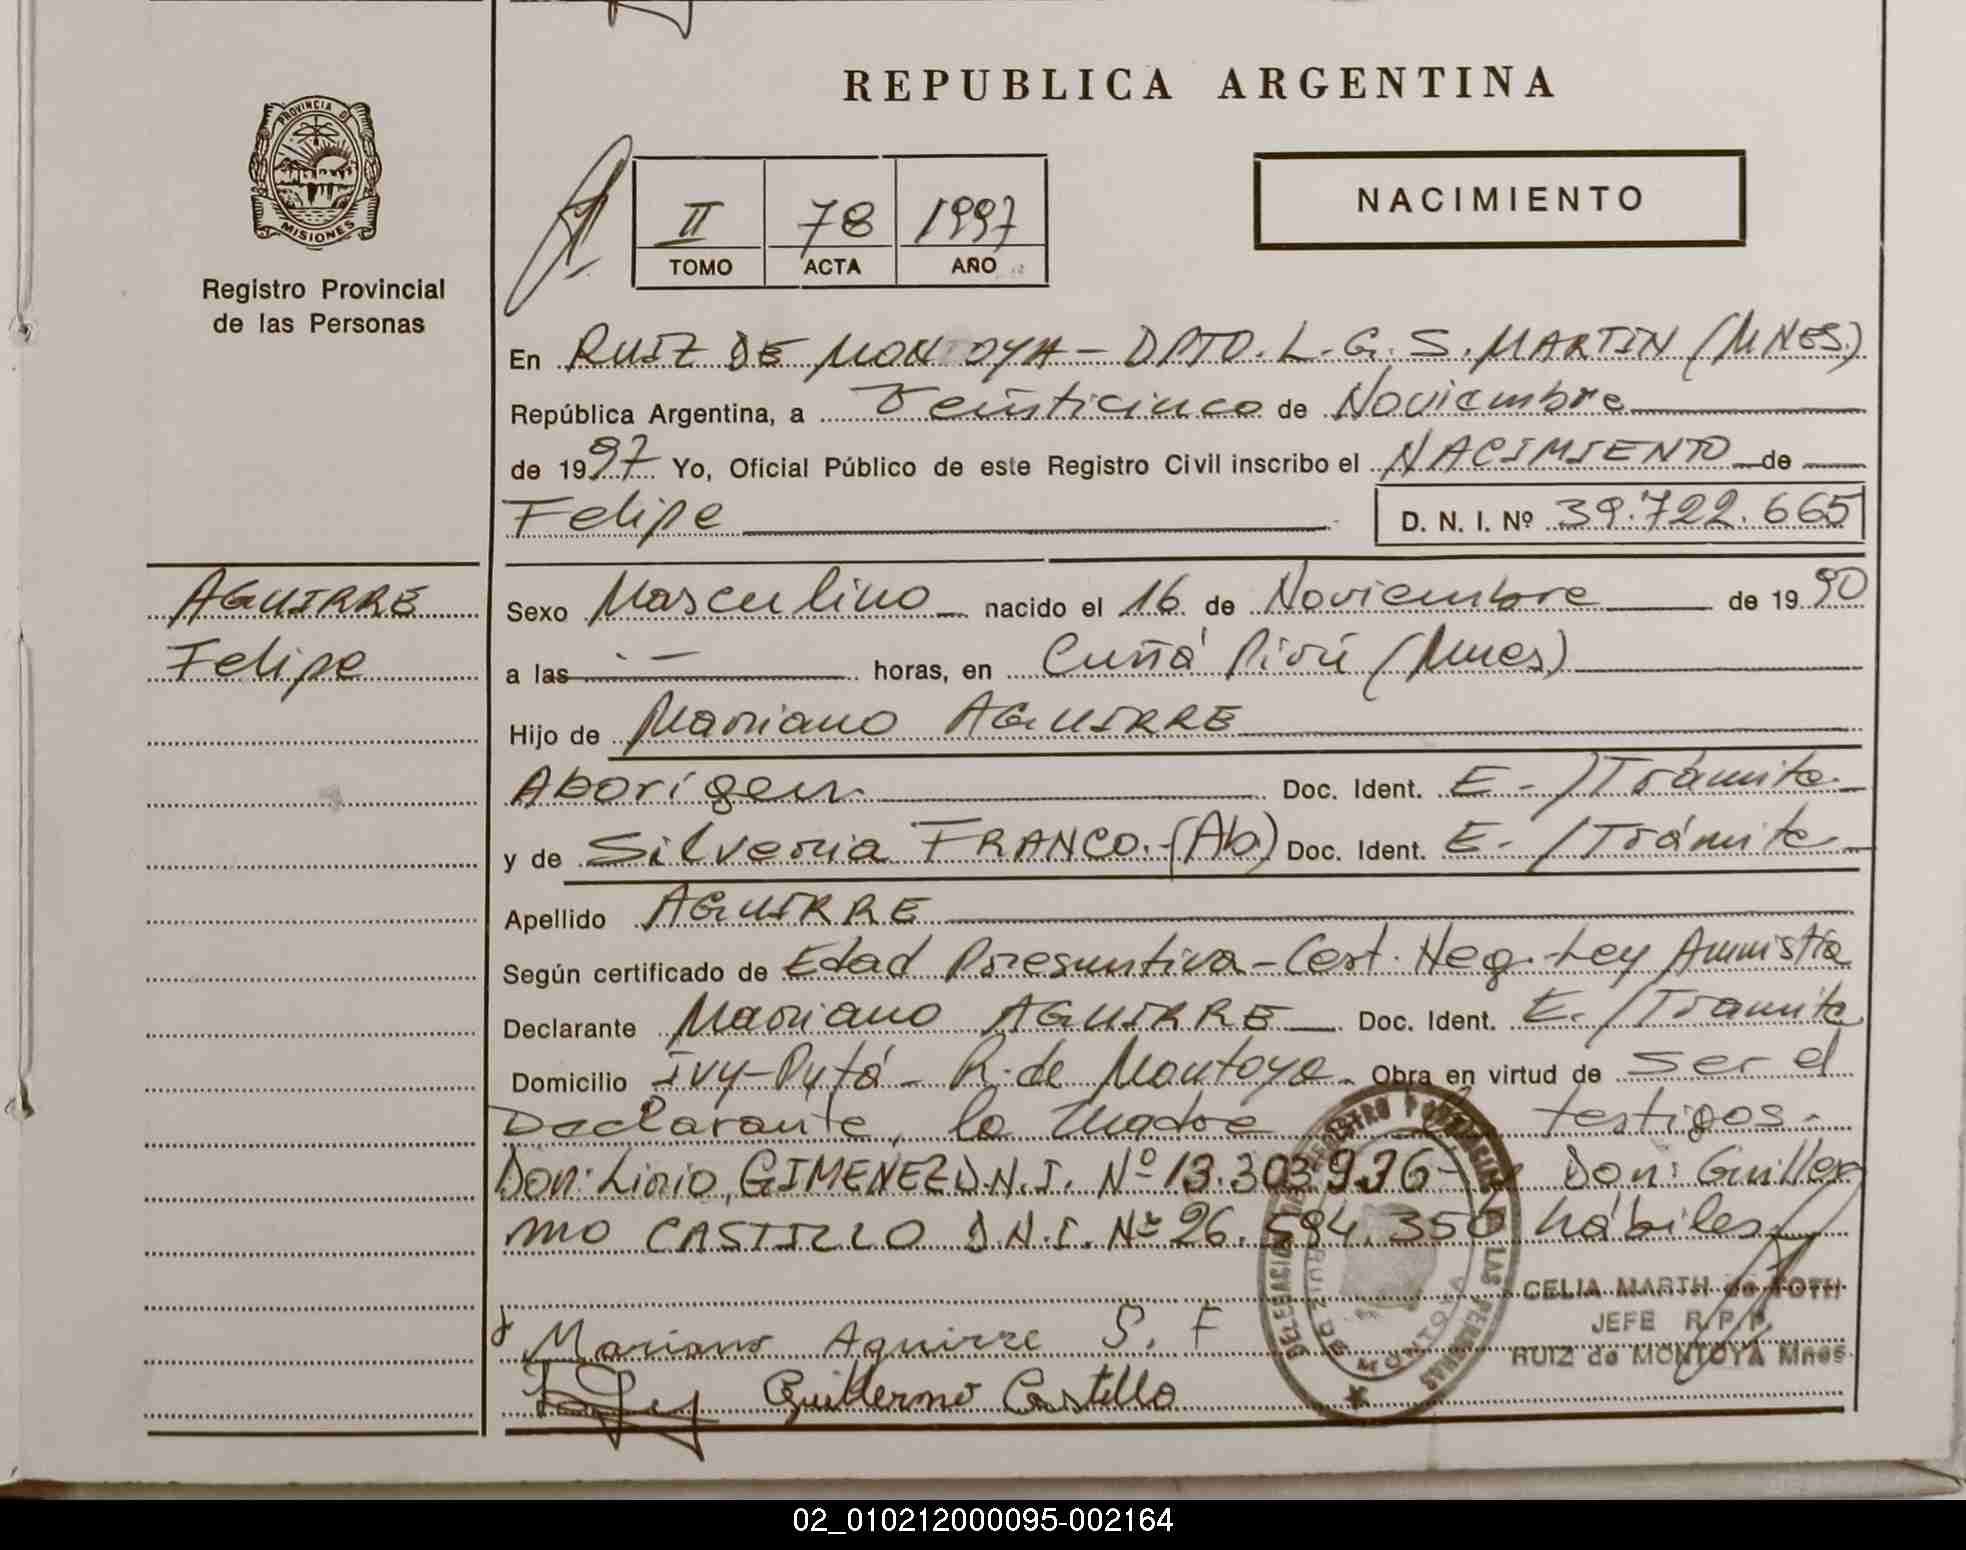 REPUBLICA ARGENTINA
PROVINCIA D
MISIONES
Registro Provincial
de las Personas
II 78 1997
TOMO ACTA AÑO
NACIMIENTO
En RUIZ DE MONTOYA - DPTO. L. G. S. MARTIN (MNES.)
República Argentina, a Veinticinco de Noviembre
de 1997 Yo, Oficial Público de este Registro Civil inscribo el NACIMIENTO de
Felipe D. N. I. Nº 39.722.665
AGUIRRE
Felipe
Sexo Masculino nacido el 16 de Noviembre de 1990
a las . — horas, en Cuñá Pirú (Mnes)
Hijo de Mariano AGUIRRE
Aborigen. Doc. Ident. E. /Trámite.
y de Silveria FRANCO.-(Ab) Doc. Ident. E. /Trámite
Apellido AGUIRRE
Según certificado de Edad Presuntiva - Cert. Neg. Ley Amnistía
Declarante Mariano AGUIRRE Doc. Ident. E. /Tramite
Domicilio Ivy-Pytá - R. de Montoya. Obra en virtud de ser el
Declarante, la madre testigos.
Don: Lirio GIMENEZ D.N.I. Nº 13.303.936 - y Don: Guiller
mo CASTILLO D.N.I. Nº 26.594.350 hábiles.
Mariano Aguirre S. F
Guillermo Castillo
DELEGACION REGISTRO PROVINCIAL DE LAS PERSONAS
RUIZ DE MONTOYA
CELIA MARTH de TOTH
JEFE R.P.P.
RUIZ de MONTOYA Mnes
02_010212000095-002164